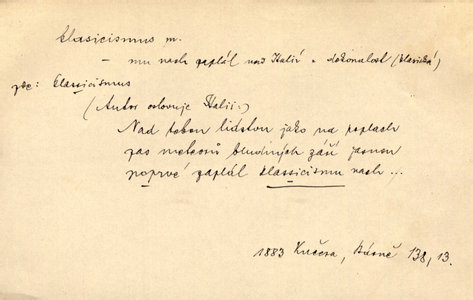 klasicismus m.
– mu nach zaplál nad Italií – dokonalost (klasická)
zde: klassicismus
(Autor oslovuje Italii:)
Nad tebou lidstvu jako na poplach
zas meteorů bludných září jasnou
poprvé zaplál klassicismu nach ...
1883 Kučera, Básně 138, 13.